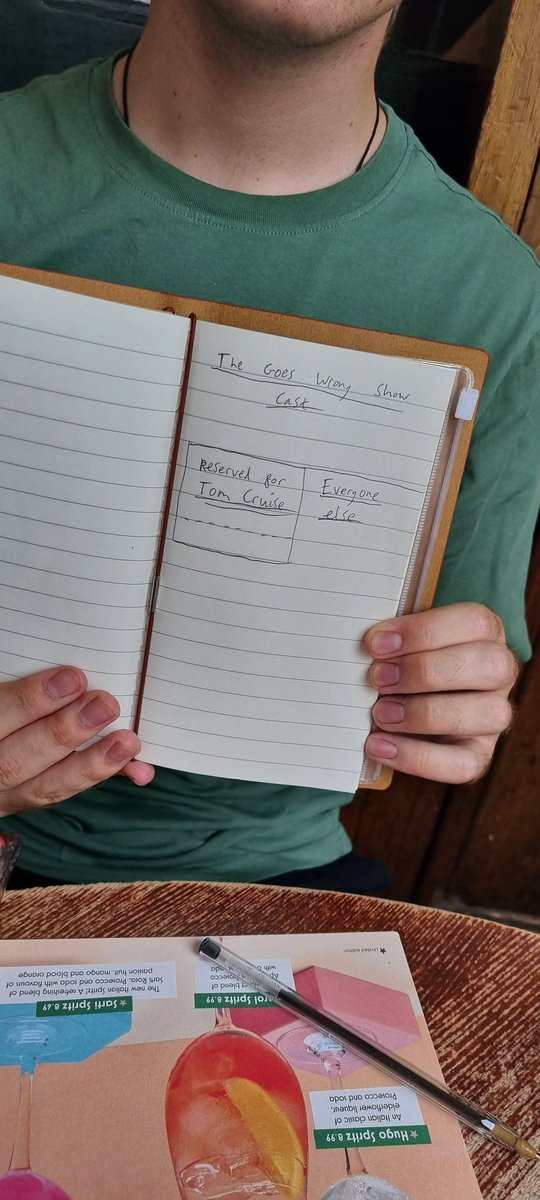 The Goes Wrong Show
Cast
Reserved for
Tom Cruise
Everyone
else
Limited edition
★ Sarti Spritz 8.69
The new Italian Spritz; A refreshing blend of
Sarti Rosa, Prosecco and soda with flavours of
passion fruit, mango and blood orange
rol Spritz 8.99
ect blend of
Prosecco
with b
★ Hugo Spritz 8.99
An Italian classic of
elderflower liqueur,
Prosecco and soda